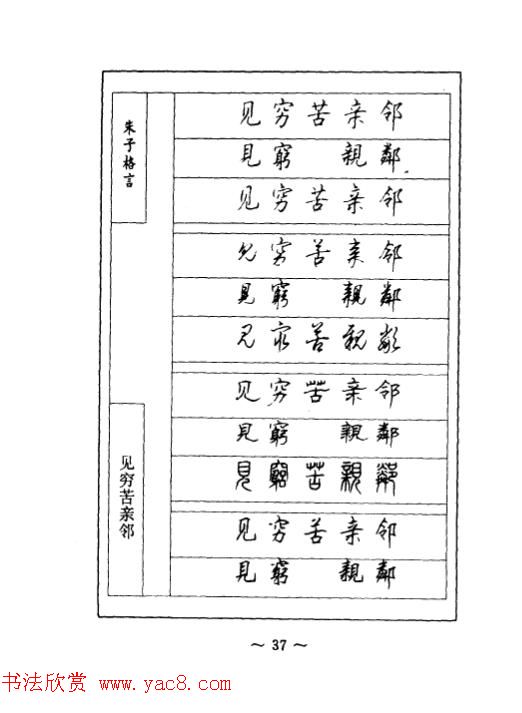 朱子格言
见穷苦亲邻
见穷苦亲邻
見窮 親鄰
见穷苦亲邻
见穷苦亲邻
見窮 親鄰
见穷苦親鄰
见穷苦亲邻
見窮 親鄰
見窮苦親鄰
见穷苦亲邻
見窮 親鄰
～ 37 ～
书法欣赏 www.yac8.com